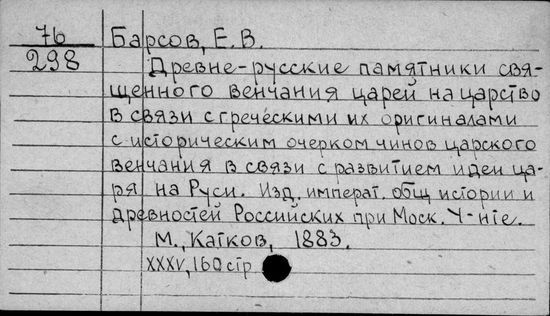 76 Барсов, Е. В.
298 Древне-русские памятники свя-
щенного венчания царей на царство
в связи с греческими их оригиналами
с историческим очерком чинов царского
венчания в связи с развитием идеи ца-
ря на Руси. Изд. императ. общ истории и
древностей Российских при Моск. У-нте.
М., Катков, 1883.
XXXV, 160 стр